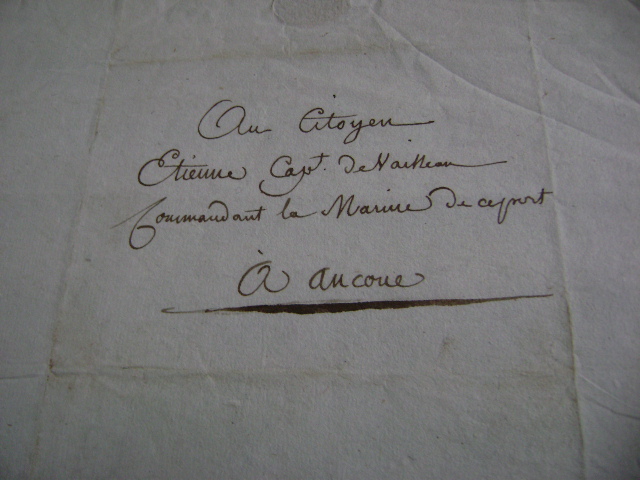 Au Citoyen
Etienne Capt. de Vaisseau
Commandant la Marine de ce port
À Ancone